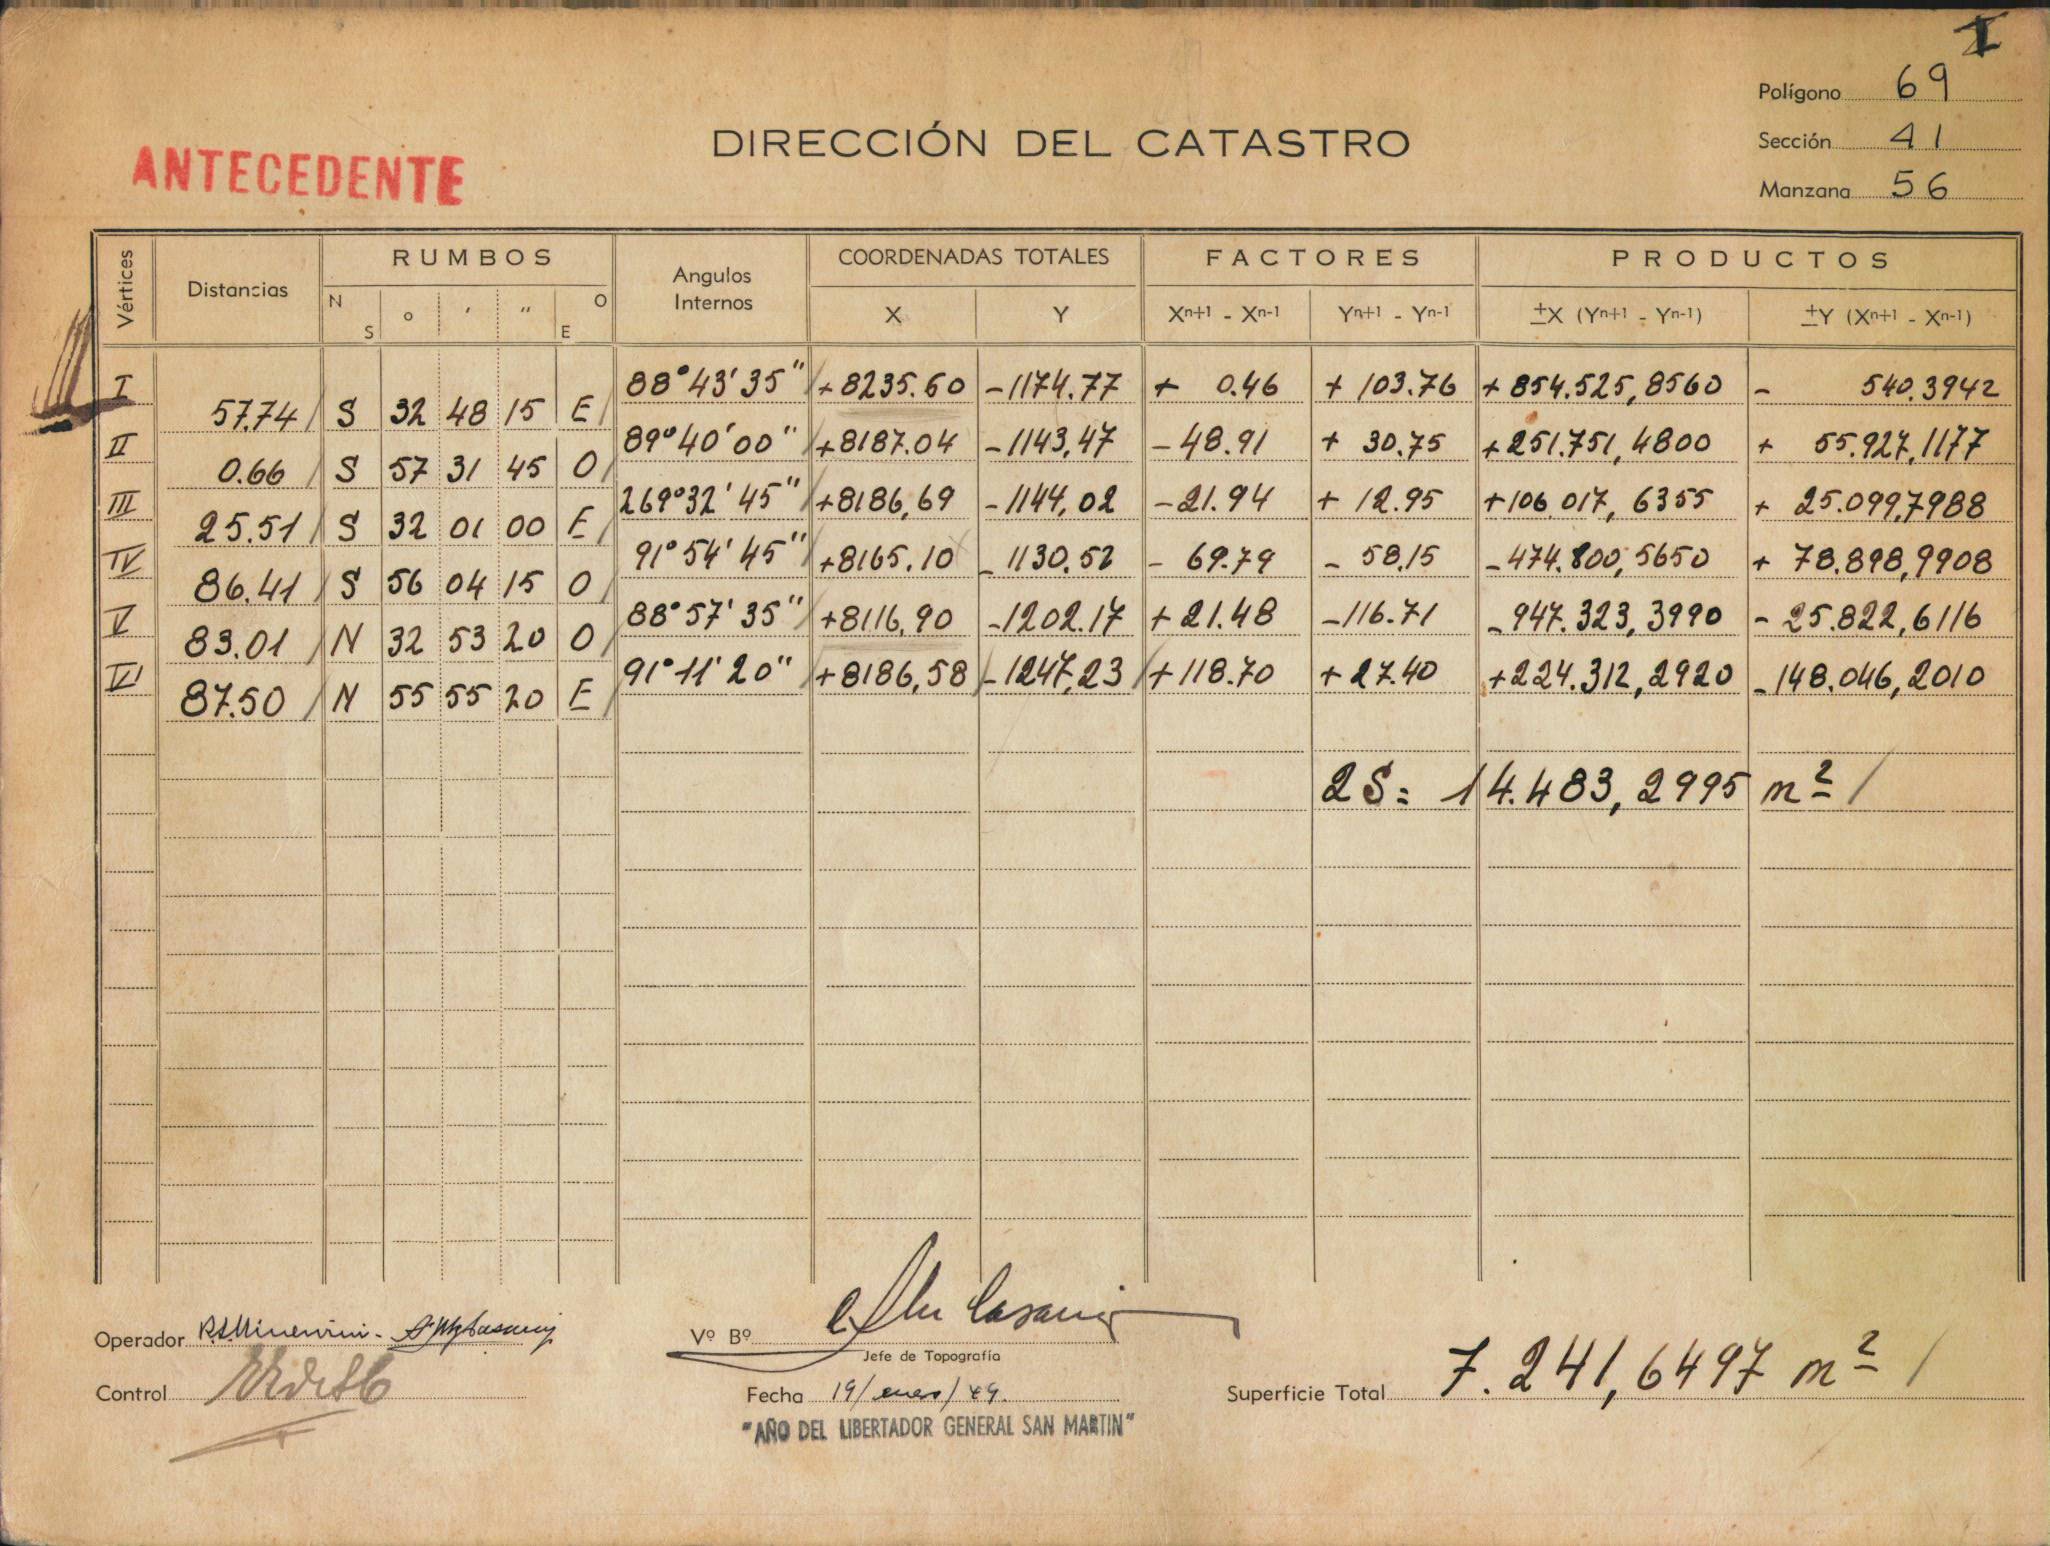 I
Polígono 69
DIRECCIÓN DEL CATASTRO
Sección 41
ANTECEDENTE
Manzana 56
Vértices Distancias RUMBOS Angulos Internos COORDENADAS TOTALES FACTORES PRODUCTOS
N S o ' " O E X Y Xn+1 - Xn-1 Yn+1 - Yn-1 ±X (Yn+1 - Yn-1) ±Y (Xn+1 - Xn-1)
I 88°43'35" +8235.60 -1174.77 + 0.46 + 103.76 +854.525,8560 - 540.3942
57.74 S 32 48 15 E
II 89°40'00" +8187.04 -1143,47 -48.91 + 30.75 +251.751,4800 + 55.927,1177
0.66 S 57 31 45 O
III 269°32'45" +8186,69 -1144,02 -21.94 + 12.95 +106.017,6355 + 25.099,7988
25.51 S 32 01 00 E
IV 91°54'45" +8165.10 -1130.52 - 69.79 - 58.15 -474.800,5650 + 78.898,9908
86.41 S 56 04 15 O
V 88°57'35" +8116,90 -1202.17 +21.48 -116.71 -947.323,3990 - 25.822,6116
83.01 N 32 53 20 O
VI 91°11'20" +8186,58 -1247,23 +118.70 +27.40 +224.312,2920 -148.046,2010
87.50 N 55 55 20 E
2S= 14.483,2995 m2
Operador R.L.Minervini-
Vº Bº
Jefe de Topografía
Control
Fecha 19/enero/49.
Superficie Total 7.241,6497 m2
"AÑO DEL LIBERTADOR GENERAL SAN MARTIN"